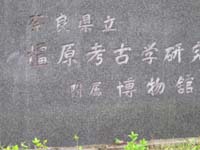 奈良県立
橿原考古学研究
附属 博物館